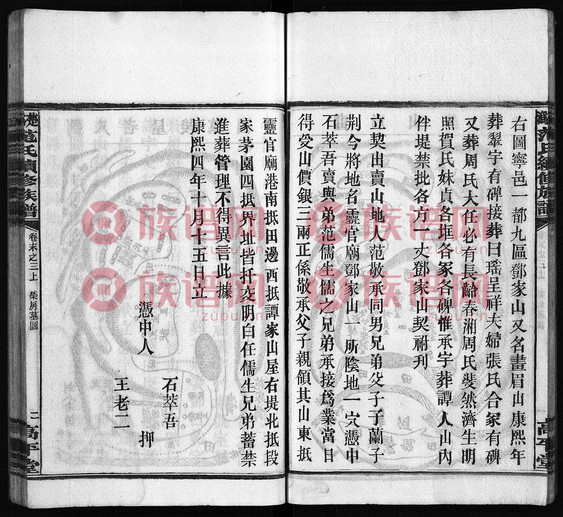 右圖寧邑一都九區鄧家山又名畫眉山康熙年
葬翠宇有碑接葬曰瑶呈祥夫婦張氏合家有碑
又葬周氏大任必有長齡春湘周氏發然濟生明
照賀氏妹貞各塚各家各碑惟承宇葬譚人山內
伴堤禁批各方一丈鄧家山契祔刋
立契出賣山地人范敬承同男兄弟父子子蘭子
荊今將地名靈官廟鄧家山一所陰地一穴憑中
石萃吾賣與弟范儒生儒之兄弟承接爲業當日
得受山價銀三兩正係敬承父子親領其山東抵
靈官廟港南抵田邊西抵譚家山屋右堤北抵段
家茅園四抵界址皆扦交明白任儒生兄弟蓄禁
進葬管理不得異言此據
康熙四年十月十五日立
憑中人
石萃吾
王老二
押
范氏續修族譜
卷末之三上
墓圖
二
高平堂
范氏續修族譜
高平堂
族譜网
zupu.cn